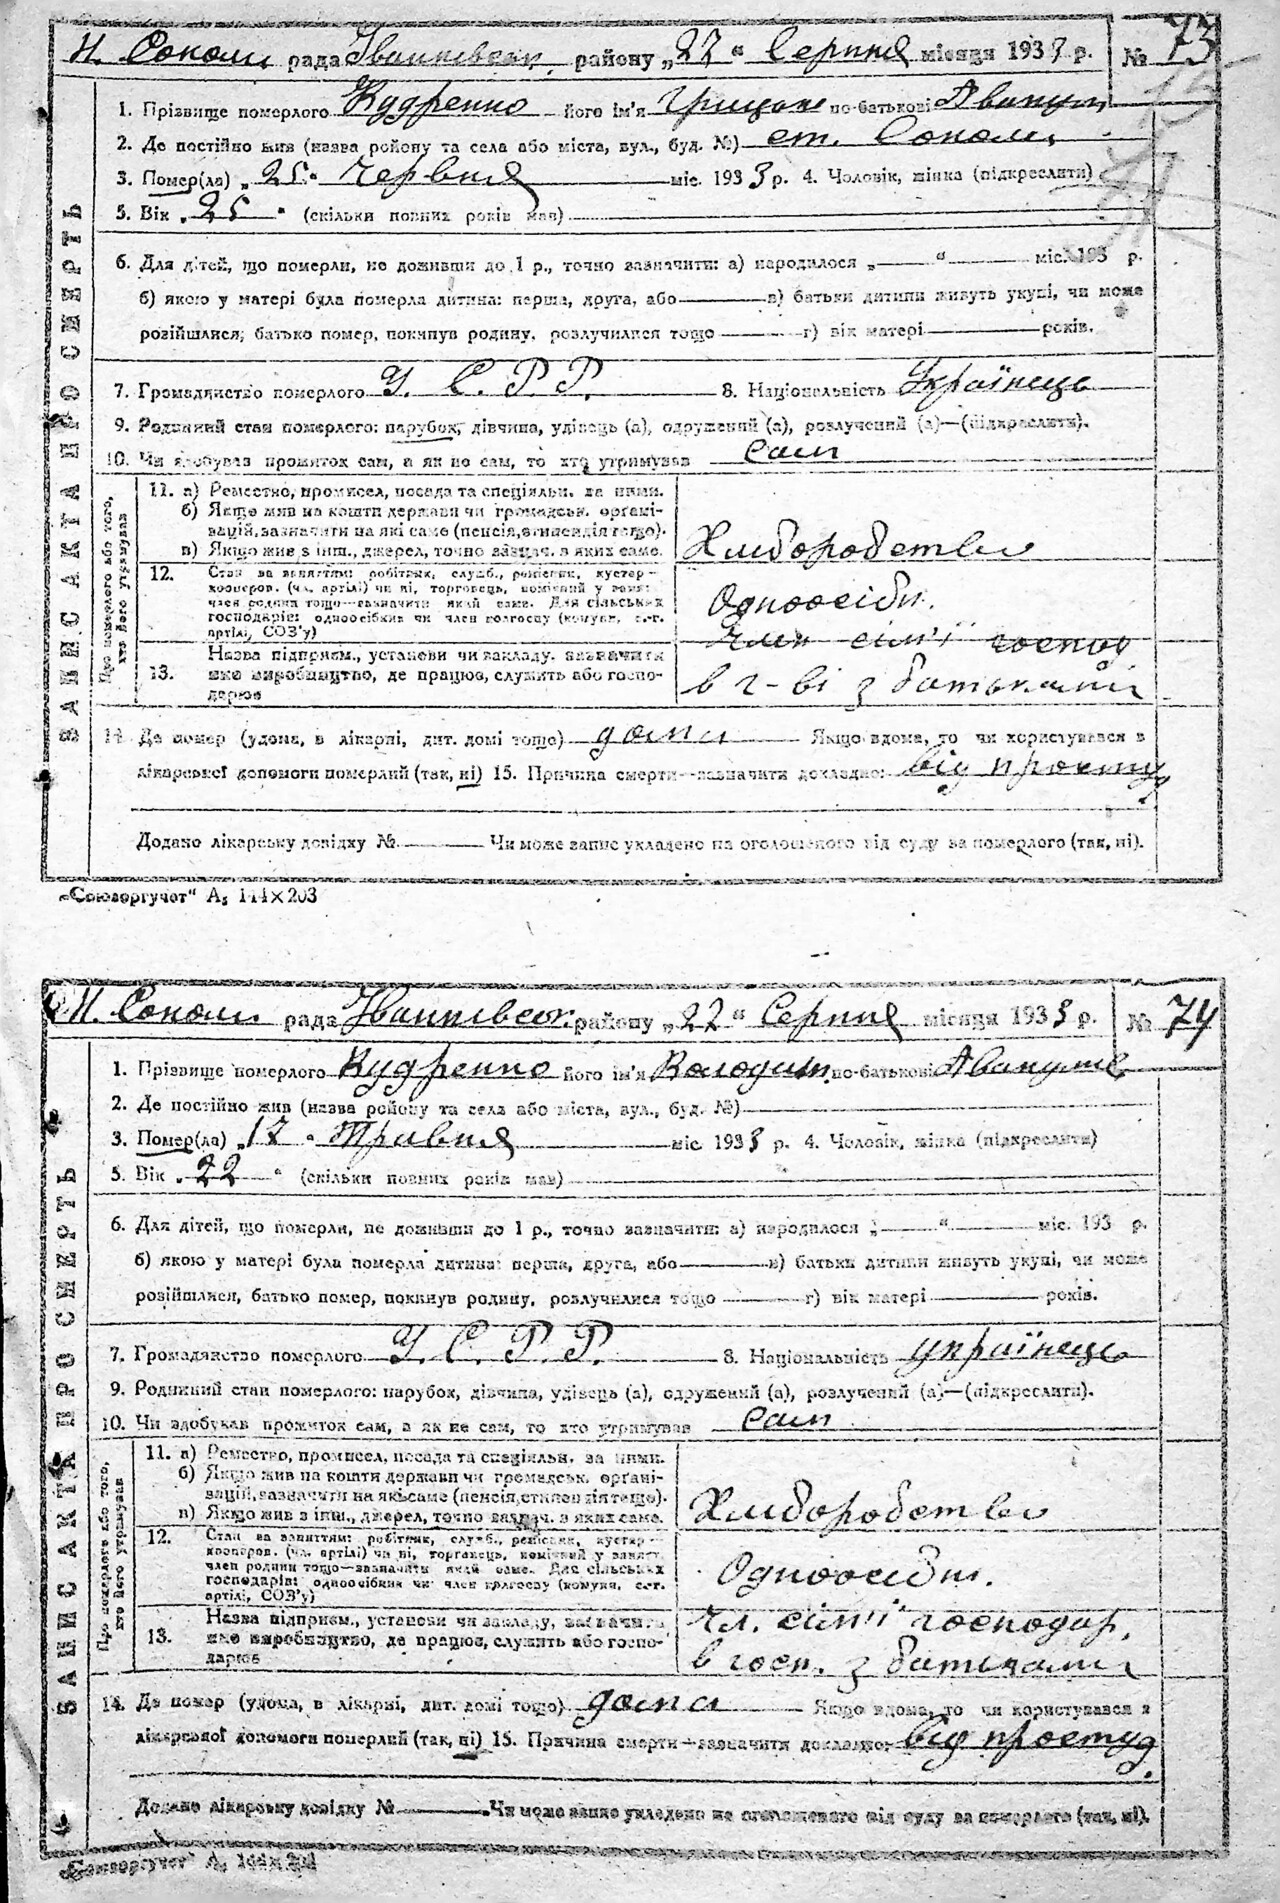 Н. Соколи рада Іванківськ. району „22“ Серпня місяця 1933 р. № 73
ЗАПИС АКТА ПРО СМЕРТЬ
1. Прізвище померлого Кудренко його ім'я Грицько по-батькові
2. Де постійно жив (назва району та села або міста, вул., буд. №) ст. Соколи
3. Помер(ла) „25“ Червня міс. 1933 р. 4. Чоловік, жінка (підкреслити)
5. Вік „25“ (скільки повних років мав)
6. Для дітей, що померли, не доживши до 1 р., точно зазначити: а) народилося „ “ міс. 193 р.
б) якою у матері була померла дитина: перша, друга, або в) батьки дитини живуть укупі, чи може
розійшлися; батько помер, покинув родину, розлучилися тощо г) вік матері років.
7. Громадянство померлого У. С. Р. Р. 8. Національність Українець
9. Родинний стан померлого: парубок, дівчина, удівець (а), одружений (а), розлучений (а)—(підкреслити).
10. Чи здобував прожиток сам, а як не сам, то хто утримував Сам
Про померлого або того, хто його утримував
11. а) Ремество, промисел, посада та спеціяльн. за ними.
б) Якщо жив на кошти держави чи громадськ. органі-
зацій, зазначити на які саме (пенсія, стипендія тощо).
в) Якщо жив з інш., джерел, точно зазнач. з яких саме.
Хліборобство
12. Стан за заняттям: робітник, служб., ремісник, кустар—
кооперов. (чл. артілі) чи ні, торговець,
член родини тощо—зазначити який саме. Для сільських
господарів: одноосібник чи член колгоспу (комуни, с.-г.
артілі, СОЗ'у)
Одноосібн.
Член сім'ї господ
13. Назва підприєм., установи чи закладу, зазначити
яке виробництво, де працює, служить або госпо-
дарює
в г-ві з батьками
14. Де помер (удома, в лікарні, дит. домі тощо) дома Якщо вдома, то чи користувався з
лікарської допомоги померлий (так, ні) 15. Причина смерти—зазначити докладно: від простуд
Додано лікарську довідку № Чи може запис укладено на оголошеного від суду за померлого (так, ні).
„Союзоргучет“ А₅ 144×203
Н. Соколи рада Іванківськ. району „22“ Серпня місяця 1933 р. № 74
ЗАПИС АКТА ПРО СМЕРТЬ
1. Прізвище померлого Кудренко його ім'я Володим. по-батькові
2. Де постійно жив (назва району та села або міста, вул., буд. №)
3. Помер(ла) „12“ Травня міс. 1933 р. 4. Чоловік, жінка (підкреслити)
5. Вік „22“ (скільки повних років мав)
6. Для дітей, що померли, не доживши до 1 р., точно зазначити: а) народилося „ “ міс. 193 р.
б) якою у матері була померла дитина: перша, друга, або в) батьки дитини живуть укупі, чи може
розійшлися, батько помер, покинув родину, розлучилися тощо г) вік матері років.
7. Громадянство померлого У. С. Р. Р. 8. Національність українець
9. Родинний стан померлого: парубок, дівчина, удівець (а), одружений (а), розлучений (а)—(підкреслити).
10. Чи здобував прожиток сам, а як не сам, то хто утримував Сам
Про померлого або того, хто його утримував
11. а) Ремество, промисел, посада та спеціяльн. за ними.
б) Якщо жив на кошти держави чи громадськ. органі-
зацій, зазначити на які саме (пенсія, стипендія тощо).
в) Якщо жив з інш., джерел, точно зазнач. з яких саме.
Хліборобство
12. Стан за заняттям: робітник, служб., ремісник, кустар—
кооперов. (чл. артілі) чи ні, торговець,
член родини тощо—зазначити який саме. Для сільських
господарів: одноосібник чи член колгоспу (комуни, с.-г.
артілі, СОЗ'у)
Одноосібн.
Чл. сім'ї господар.
13. Назва підприєм., установи чи закладу, зазначить
яке виробництво, де працює, служить або госпо-
дарює
в госп. з батьками
14. Де помер (удома, в лікарні, дит. домі тощо) дома Якщо вдома, то чи користувався з
лікарської допомоги померлий (так, ні) 15. Причина смерти—зазначити докладно: від простуд.
Додано лікарську довідку № Чи може запис укладено на оголошеного від суду за померлого (так, ні).
„Союзоргучет“ А₅ 144×203